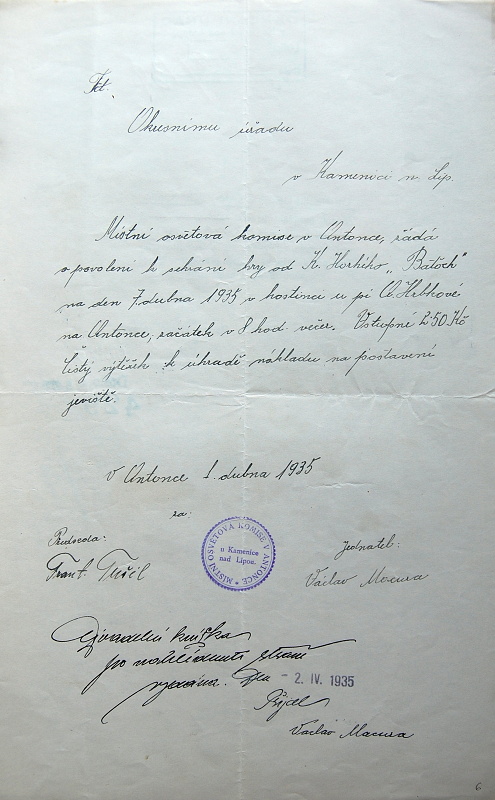 Tit.
Okresnímu úřadu
v Kamenici n. Lip.
Místní osvětová komise v Antonce, žádá
o povolení k sehrání hry od K. Horkého „Batoch"
na den 7. dubna 1935 v hostinci u pí Hrbkové
na Antonce, začátek v 8 hod. večer. Vstupné 2·50 Kč
Čistý výtěžek k úhradě nákladu na postavení
jeviště.
V Antonce 1. dubna 1935
za:
Předseda:
Frant. Tušil
MÍSTNÍ OSVĚTOVÁ KOMISE V ANTONCE
u Kamenice
nad Lipou.
Jednatel:
Václav Macura
Divadelní knížka
po
vydána. Dne - 2. IV. 1935
Přijal
Václav Macura
6